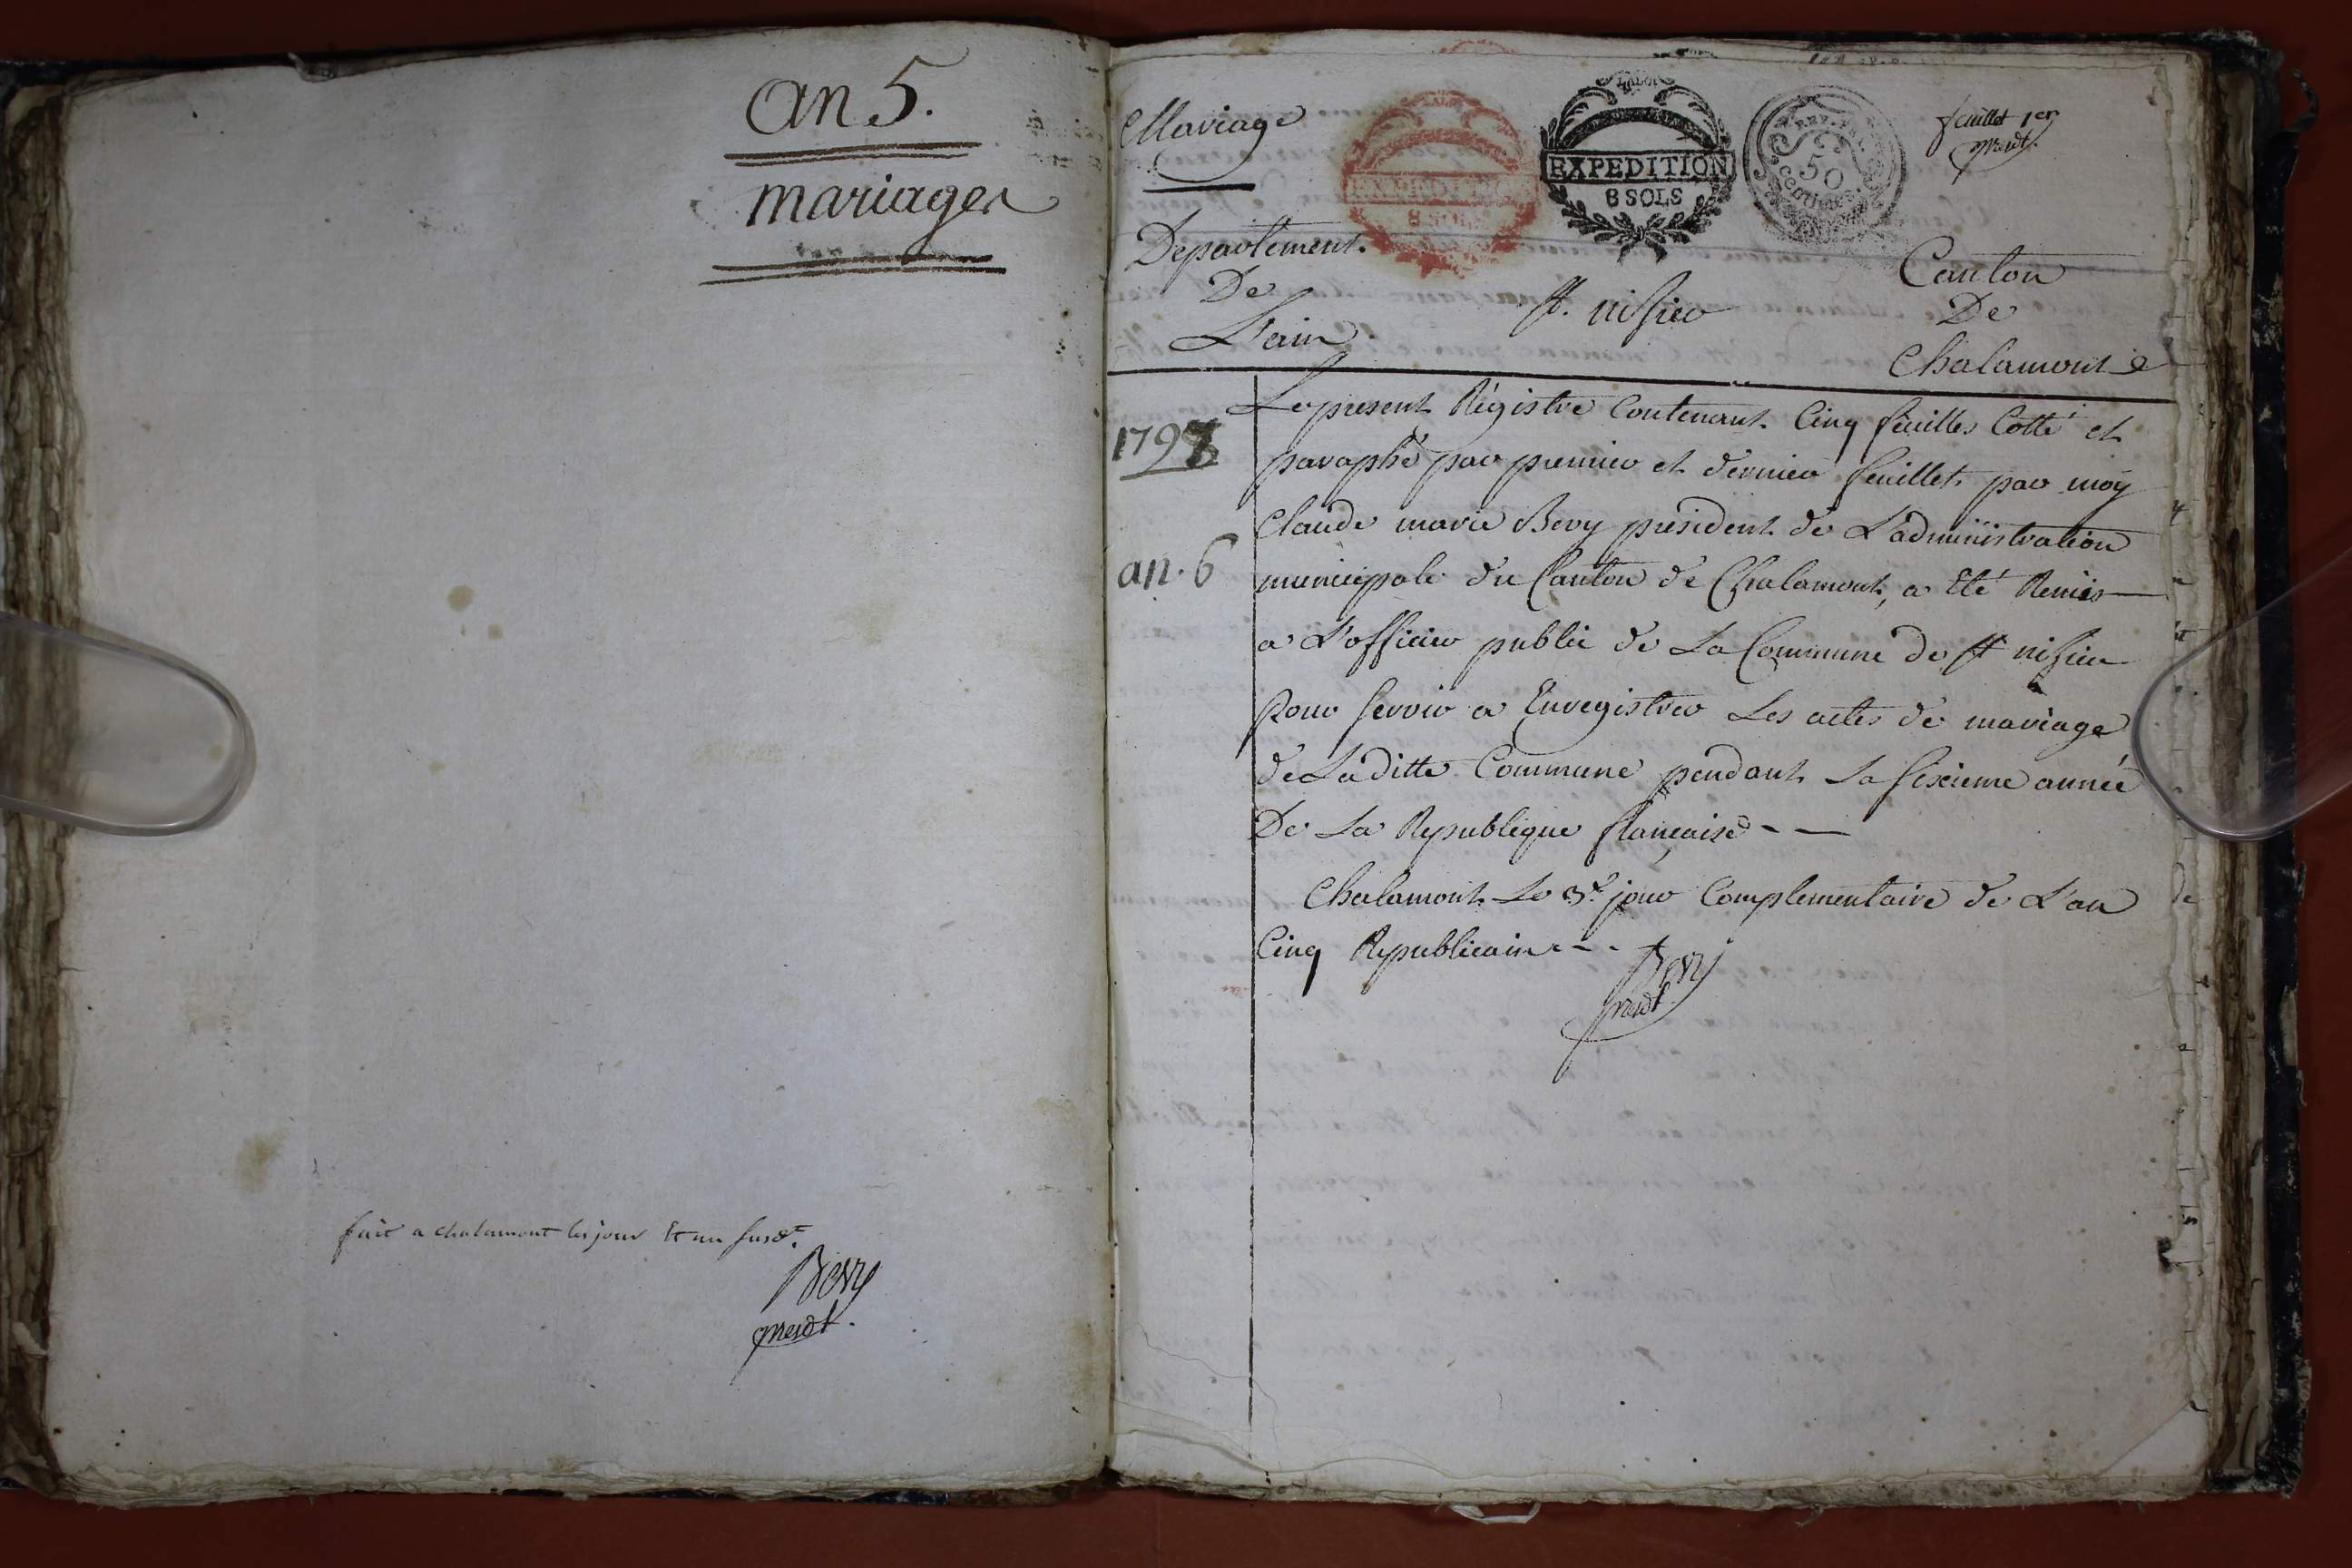 an 5.
mariages
fait a chalamont les jour Et an susdt.
Bery
presdt.
Mariage
EXPEDITION
8 SOLS
EXPEDITION
8 SOLS
REP. FRA.
50
centimes
feuillet 1er
presdt.
Departement
De
L'ain
st. nisier
Canton
De
Chalamont
1797
an. 6
Le present Régistre Contenant Cinq feuilles Cotté et
paraphé par premier et dernier feuillet par moy
Claude marie Bery président de L'administration
municipale du Canton de Chalamont, a Eté Remis
a L'officier public de La Commune de st nisier
pour servir a Enregistrer Les actes de mariage
de Laditte Commune pendant La sixieme année
De La Republique francaise - -
Chalamont Le 3e. jour Complementaire de L'an
Cinq Republicain - -
Bery
presdt.